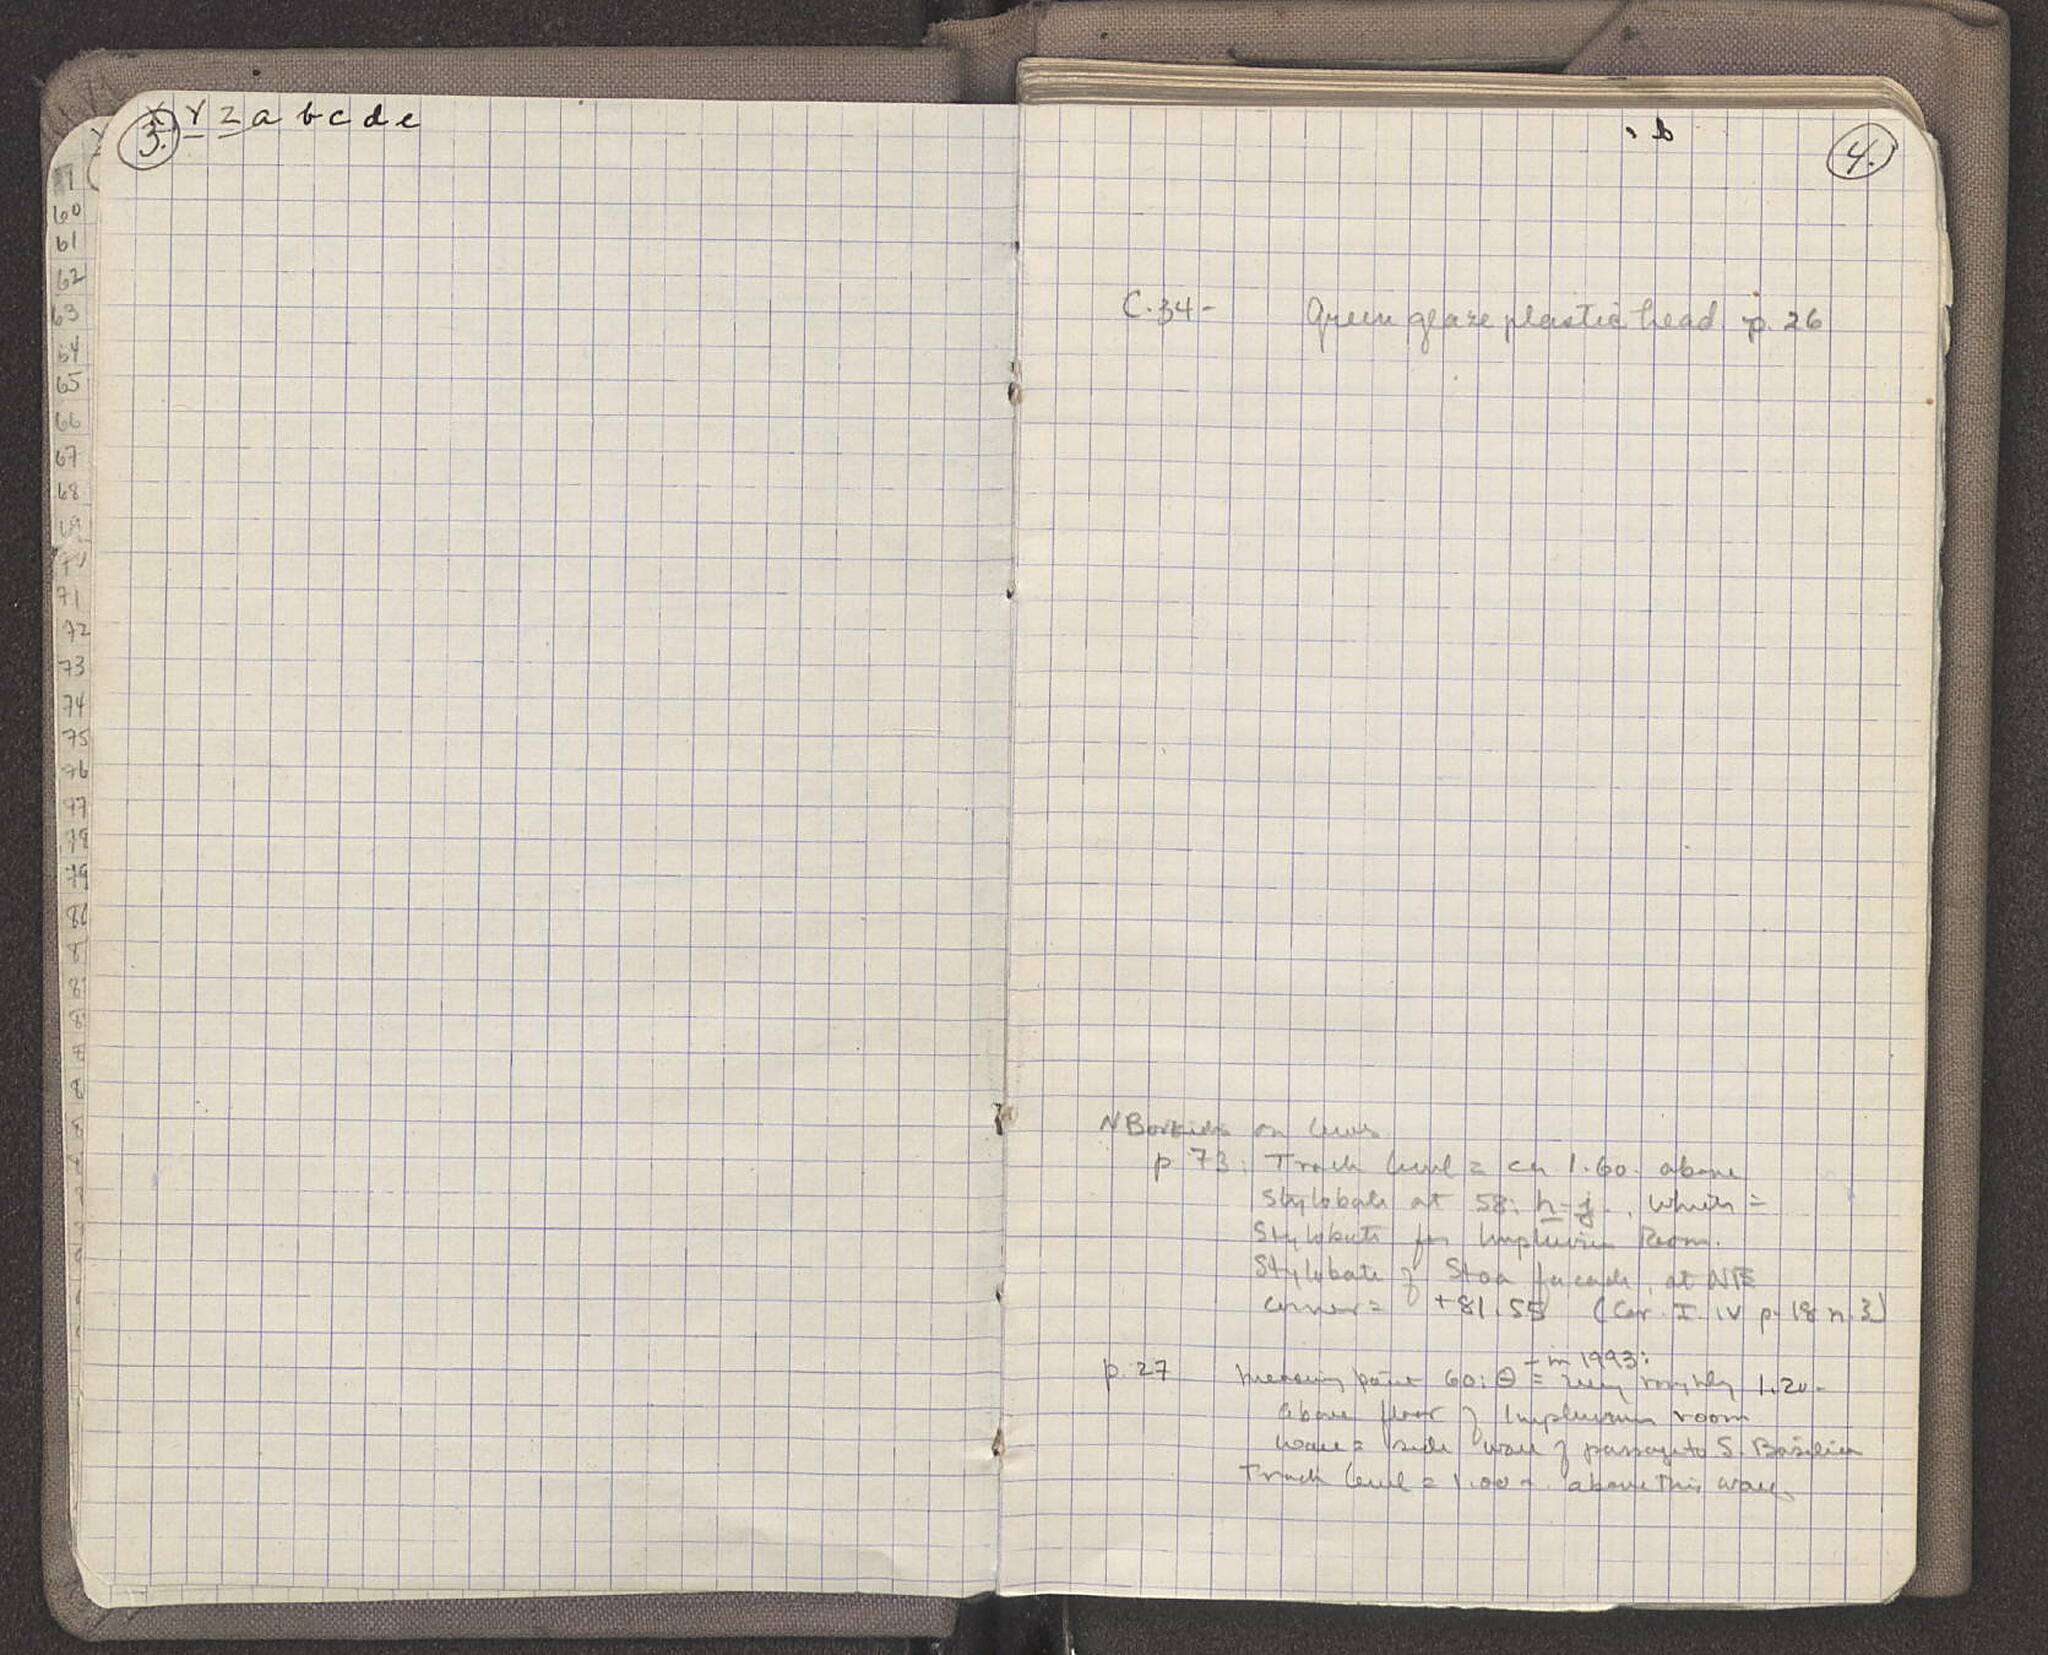 3.
X Y Z a b c d e
60
61
62
63
64
65
66
67
68
69
70
71
72
73
74
75
76
77
78
79
4.
b
C.34- Green glaze plastic head p. 26
NB on levels
p 73: Track level = ca 1.60. above
Stylobate at 58: h-j., which =
Stylobate for Impluvium Room.
Stylobate of Stoa facade, at NE
corner = +81.55 (Cor. I. iv p. 18 n. 3)
- in 1993:
p. 27 measuring point 60: Θ = very roughly 1.20-
above floor of Impluvium room
wall = side wall of passage to S. Basilica
Track level = 1.00 above this wall